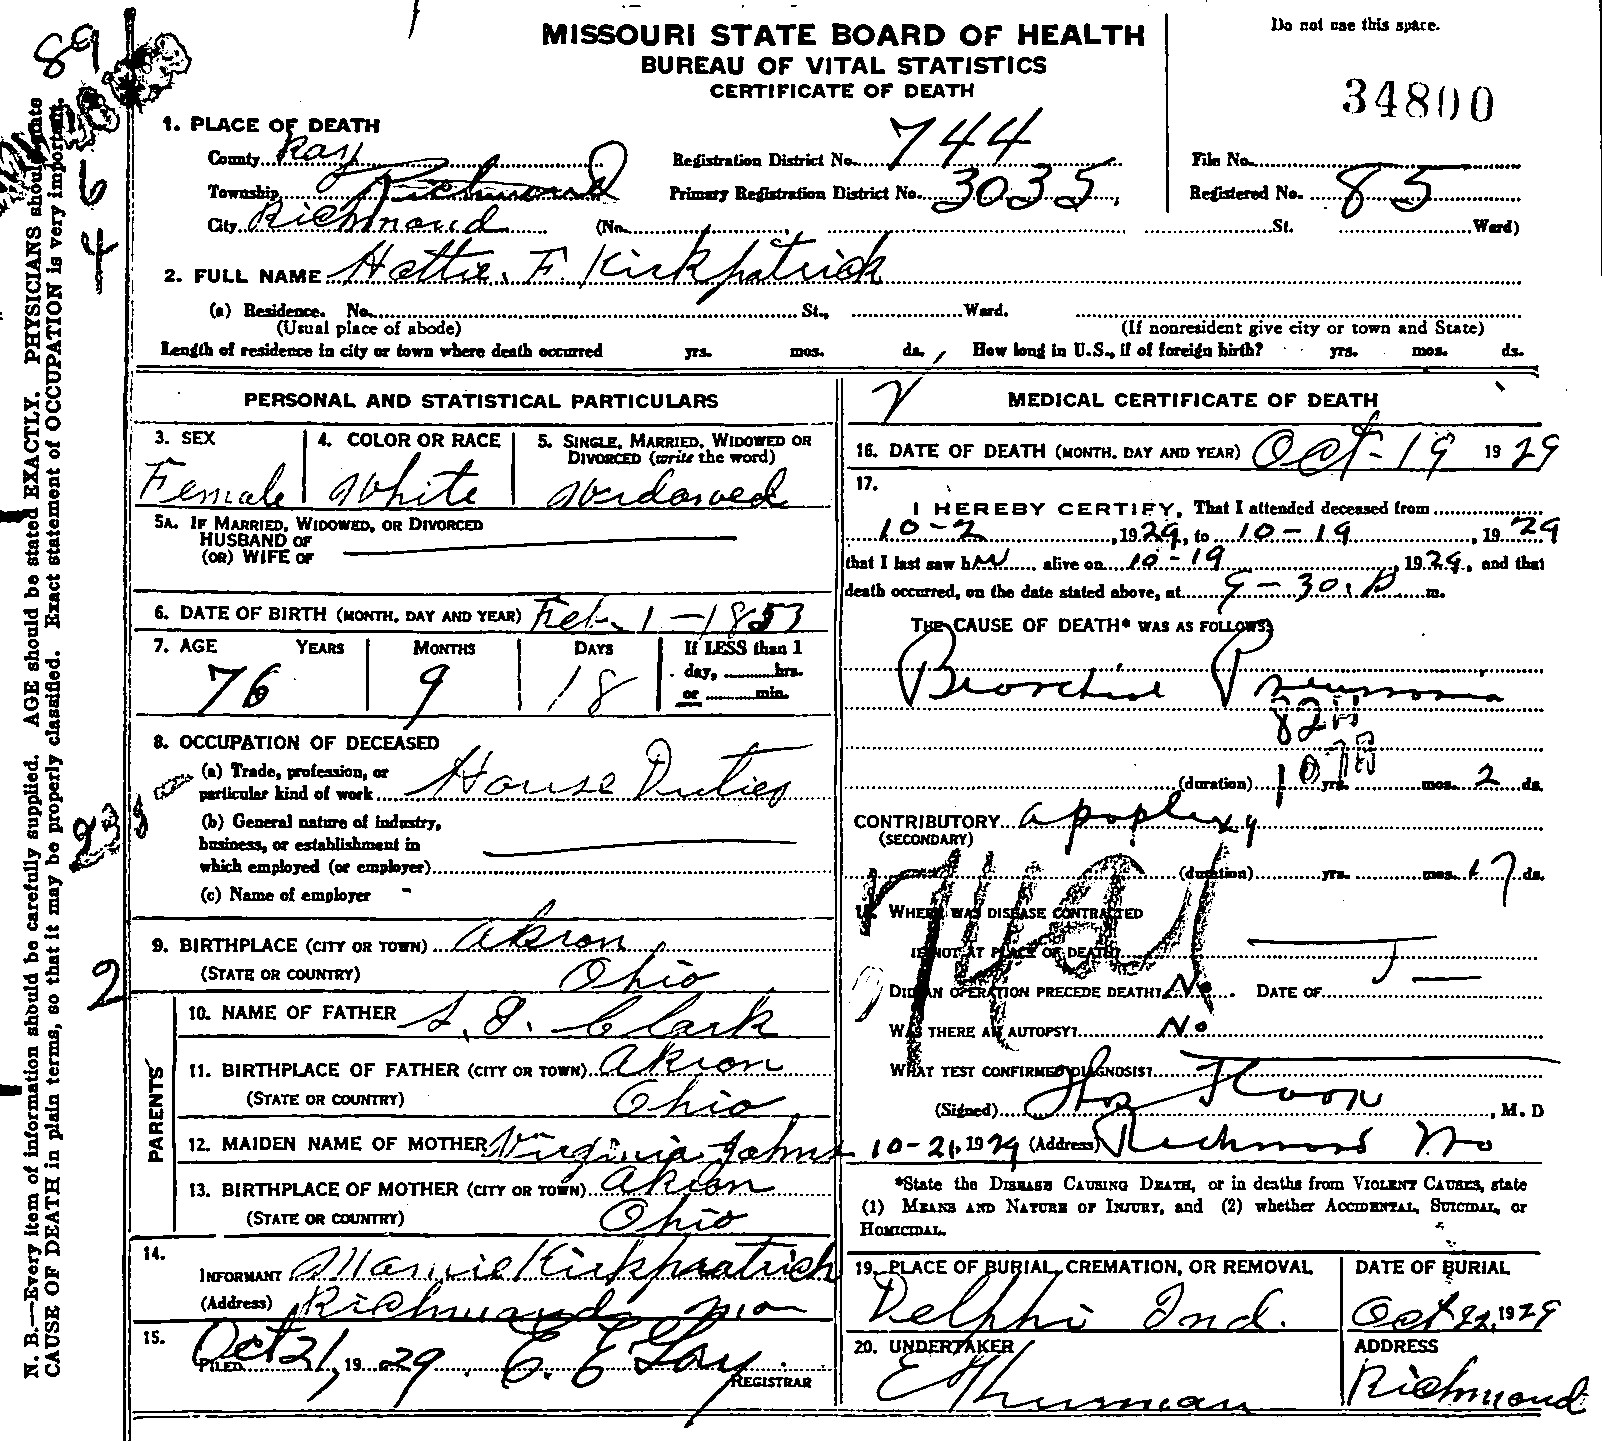 MISSOURI STATE BOARD OF HEALTH
BUREAU OF VITAL STATISTICS
CERTIFICATE OF DEATH
Do not use this space.
34800
1. PLACE OF DEATH
County Ray
Registration District No. 744
File No.
Township Richmond
Primary Registration District No. 3035
Registered No. 85
City Richmond (No. St. Ward)
2. FULL NAME Hattie. F. Kirkpatrick
(a) Residence. No. St., Ward.
(Usual place of abode) (If nonresident give city or town and State)
Length of residence in city or town where death occurred yrs. mos. ds. How long in U.S., if of foreign birth? yrs. mos. ds.
PERSONAL AND STATISTICAL PARTICULARS
3. SEX
Female
4. COLOR OR RACE
White
5. SINGLE, MARRIED, WIDOWED OR
DIVORCED (write the word)
Widowed
5A. IF MARRIED, WIDOWED, OR DIVORCED
HUSBAND OF
(OR) WIFE OF
6. DATE OF BIRTH (MONTH, DAY AND YEAR) Feb. 1 - 1853
7. AGE YEARS MONTHS DAYS If LESS than 1
day, hrs.
or min.
76 9 18
8. OCCUPATION OF DECEASED
(a) Trade, profession, or
particular kind of work House Duties
(b) General nature of industry,
business, or establishment in
which employed (or employer)
(c) Name of employer -
9. BIRTHPLACE (CITY OR TOWN) Akron
(STATE OR COUNTRY) Ohio
PARENTS
10. NAME OF FATHER Clark
11. BIRTHPLACE OF FATHER (CITY OR TOWN) Akron
(STATE OR COUNTRY) Ohio
12. MAIDEN NAME OF MOTHER Virginia Johns
13. BIRTHPLACE OF MOTHER (CITY OR TOWN) Akron
(STATE OR COUNTRY) Ohio
14.
INFORMANT Mamie Kirkpatrick
(Address) Richmond Mo
15.
FILED Oct 21, 1929 E. E. Gay
REGISTRAR
MEDICAL CERTIFICATE OF DEATH
16. DATE OF DEATH (MONTH, DAY AND YEAR) Oct - 19 1929
17.
I HEREBY CERTIFY, That I attended deceased from
10-2, 1929, to 10-19, 1929
that I last saw h alive on 10-19, 1929, and that
death occurred, on the date stated above, at 9-30.P. m.
THE CAUSE OF DEATH* WAS AS FOLLOWS:
Bronchial Pneumonia
82A
107A
(duration) yrs. mos. 2 ds.
CONTRIBUTORY apoplexy
(SECONDARY)
(duration) yrs. mos. 17 ds.
18. WHERE WAS DISEASE CONTRACTED
IF NOT AT PLACE OF DEATH?
DID AN OPERATION PRECEDE DEATH? No. DATE OF
WAS THERE AN AUTOPSY? No
WHAT TEST CONFIRMED DIAGNOSIS?
(Signed) , M. D
10-21, 1929 (Address) Richmond Mo
*State the DISEASE CAUSING DEATH, or in deaths from VIOLENT CAUSES, state
(1) MEANS AND NATURE OF INJURY, and (2) whether ACCIDENTAL, SUICIDAL, or
HOMICIDAL.
19. PLACE OF BURIAL, CREMATION, OR REMOVAL
Delphi Ind.
DATE OF BURIAL
Oct 22, 1929
20. UNDERTAKER
E Thurman
ADDRESS
Richmond
N. B.—Every item of information should be carefully supplied. AGE should be stated EXACTLY. PHYSICIANS should state
CAUSE OF DEATH in plain terms, so that it may be properly classified. Exact statement of OCCUPATION is very important.
89
2